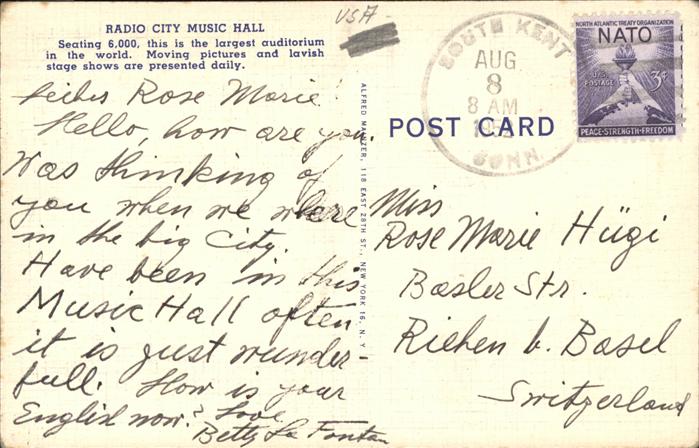 USA
RADIO CITY MUSIC HALL
Seating 6,000, this is the largest auditorium
in the world. Moving pictures and lavish
stage shows are presented daily.
Rose Marie!
Hello, how are you.
Was thinking of
you when we where
in the big City.
Have been in this
Music Hall often
it is just wunder
full. How is your
English now? Love
Betty La Fontan
ALFRED MAINZER, 118 EAST 28TH ST., NEW YORK 16, N. Y.
POST CARD
SOUTH KENT
AUG
8
8 AM
CONN.
NORTH ATLANTIC TREATY ORGANIZATION
NATO
U.S. POSTAGE
3¢
PEACE-STRENGTH-FREEDOM
Miss
Rose Marie Hügi
Basler Str.
Riehen b. Basel
Switzerland